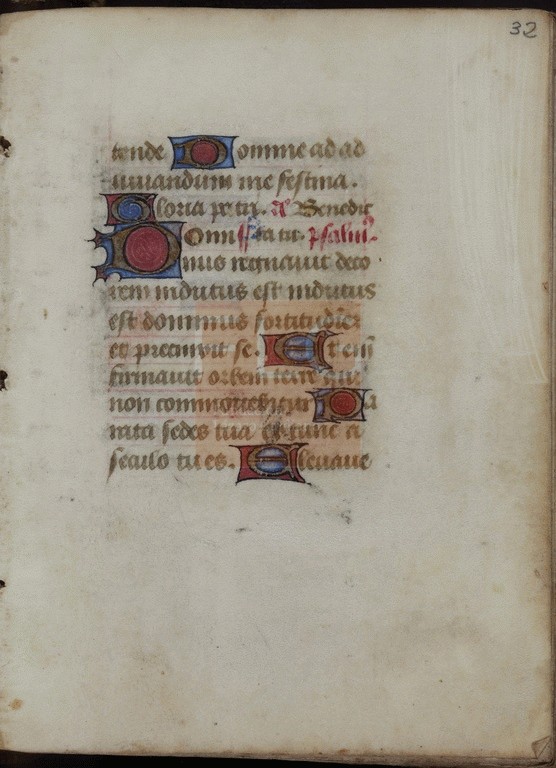 32
tende Domine ad ad
iuuandum me festina.
Gloria patri. a Benedic
Domi ta tu. psalm.
nus regnauit deco
rem indutus est indutus
est dominus fortitudiez
et precinxit se. Et eni
firmauit orbem terre qui
non commouebitur Pa
rata sedes tua ex tunc a
seculo tu es. Eleuaue